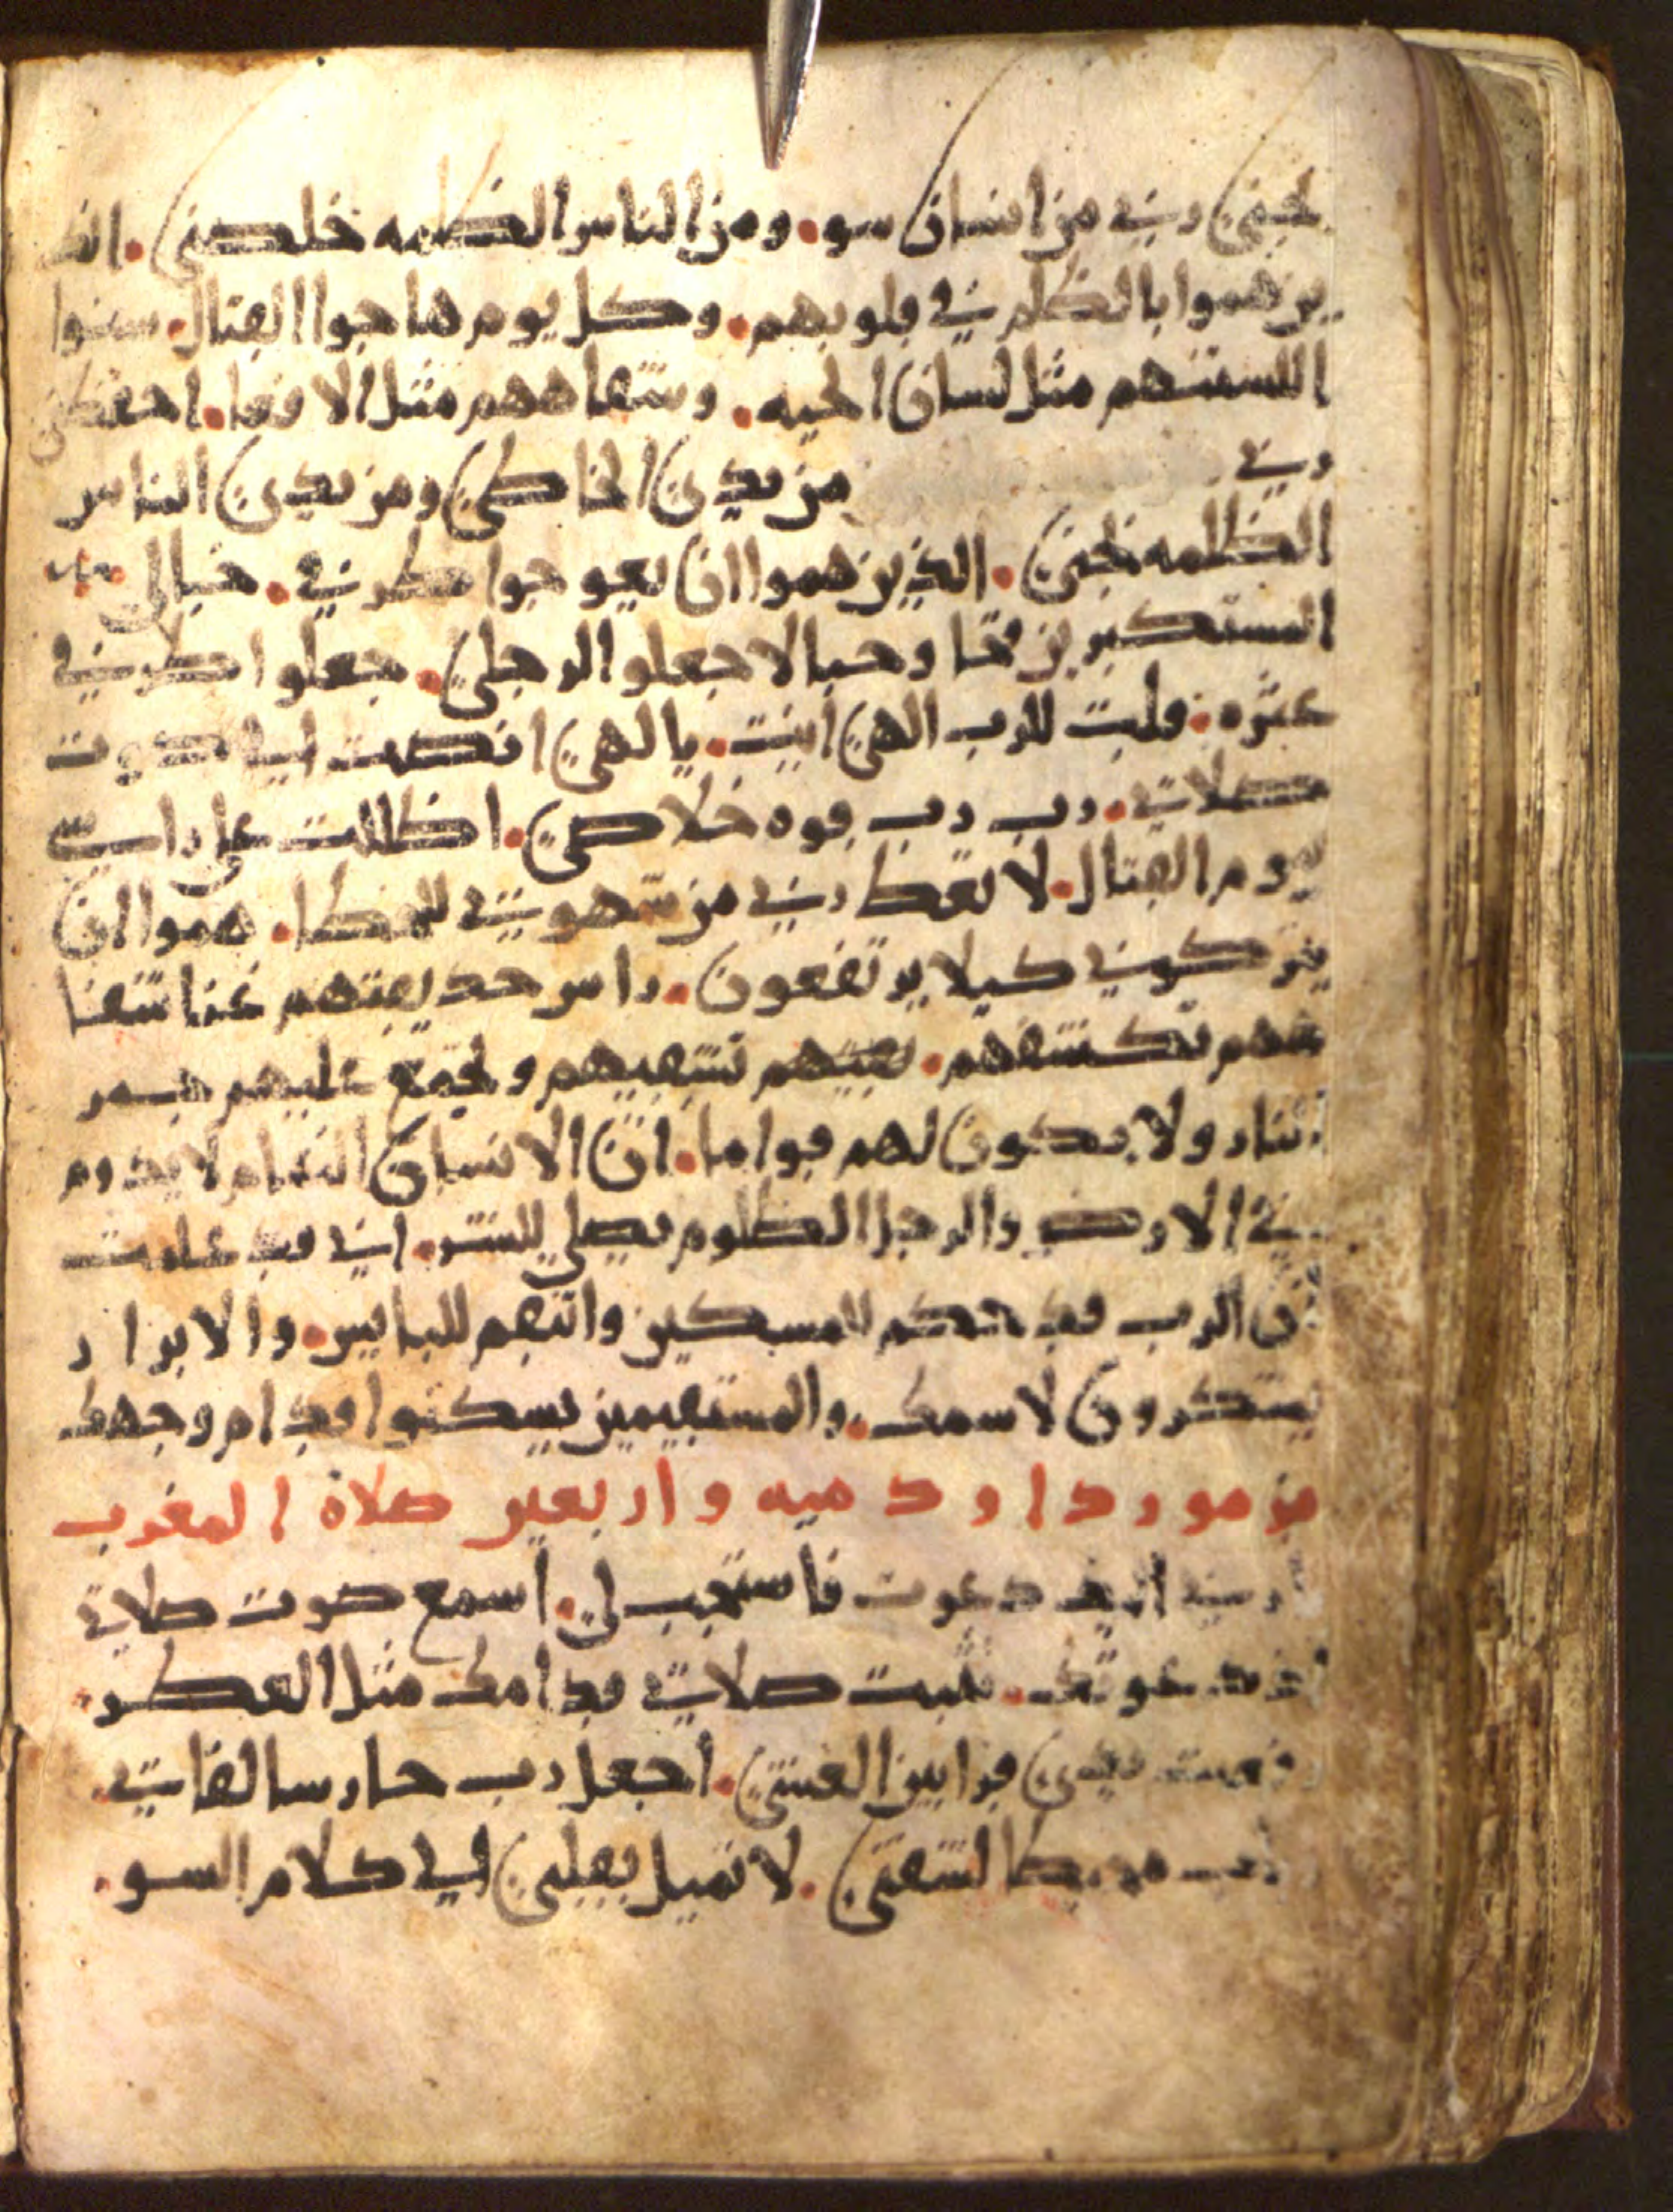 نجيني ربي من انسان سو. ومن الناس الظلمه خلصني. الذ
ين هموا بالظلم في قلوبهم. وكل يوم هاجوا القتال. سنوا
اللسنتهم مثل لسان الحيه. وشفاههم مثل الافعا. احفظني
ربي من يدين الخاطي ومن يدين الناس
الظلمه نجيني. الذين هموا ان يعوجوا طرقي. خبالي
المستكبرين فخا وحبالا جعلوا لرجلي. جعلوا طرقي
عثره. قلت للرب الهي انت. يالهي انصت لي صوت
صلاتي. رب رب قوه خلاصي. اظللت على راسي
يوم القتال. لا تعط ربي من شهوتي للخطا. هموا ان
يتركوني كيلا يرتفعون. راس حديقتهم عنا شفا
ههم تكشفهم. تشقيهم وتجمع عليهم جمر
النار ولا يكون لهم قواما. ان الانسان النمام لا يدوم
في الارض والرجل الظلوم يصلي للشر. اني قد علمت
ان الرب قد حكم للمسكين وانتقم للبايس. والابرار
يشكرون لاسمك. والمستقيمين يسكنوا قدام وجهك
مزمور داود ميه واربعين صلاة المغرب
ربي اليك دعوت فاستجب لي. اسمع صوت صلاتي
اذ دعوتك. تثبت صلاتي قدامك مثل العطر.
رفعت يدي قرابين العشي. اجعل رب حارسا لفاتي.
لشفتي. لا تميل بقلبي الي كلام السو.